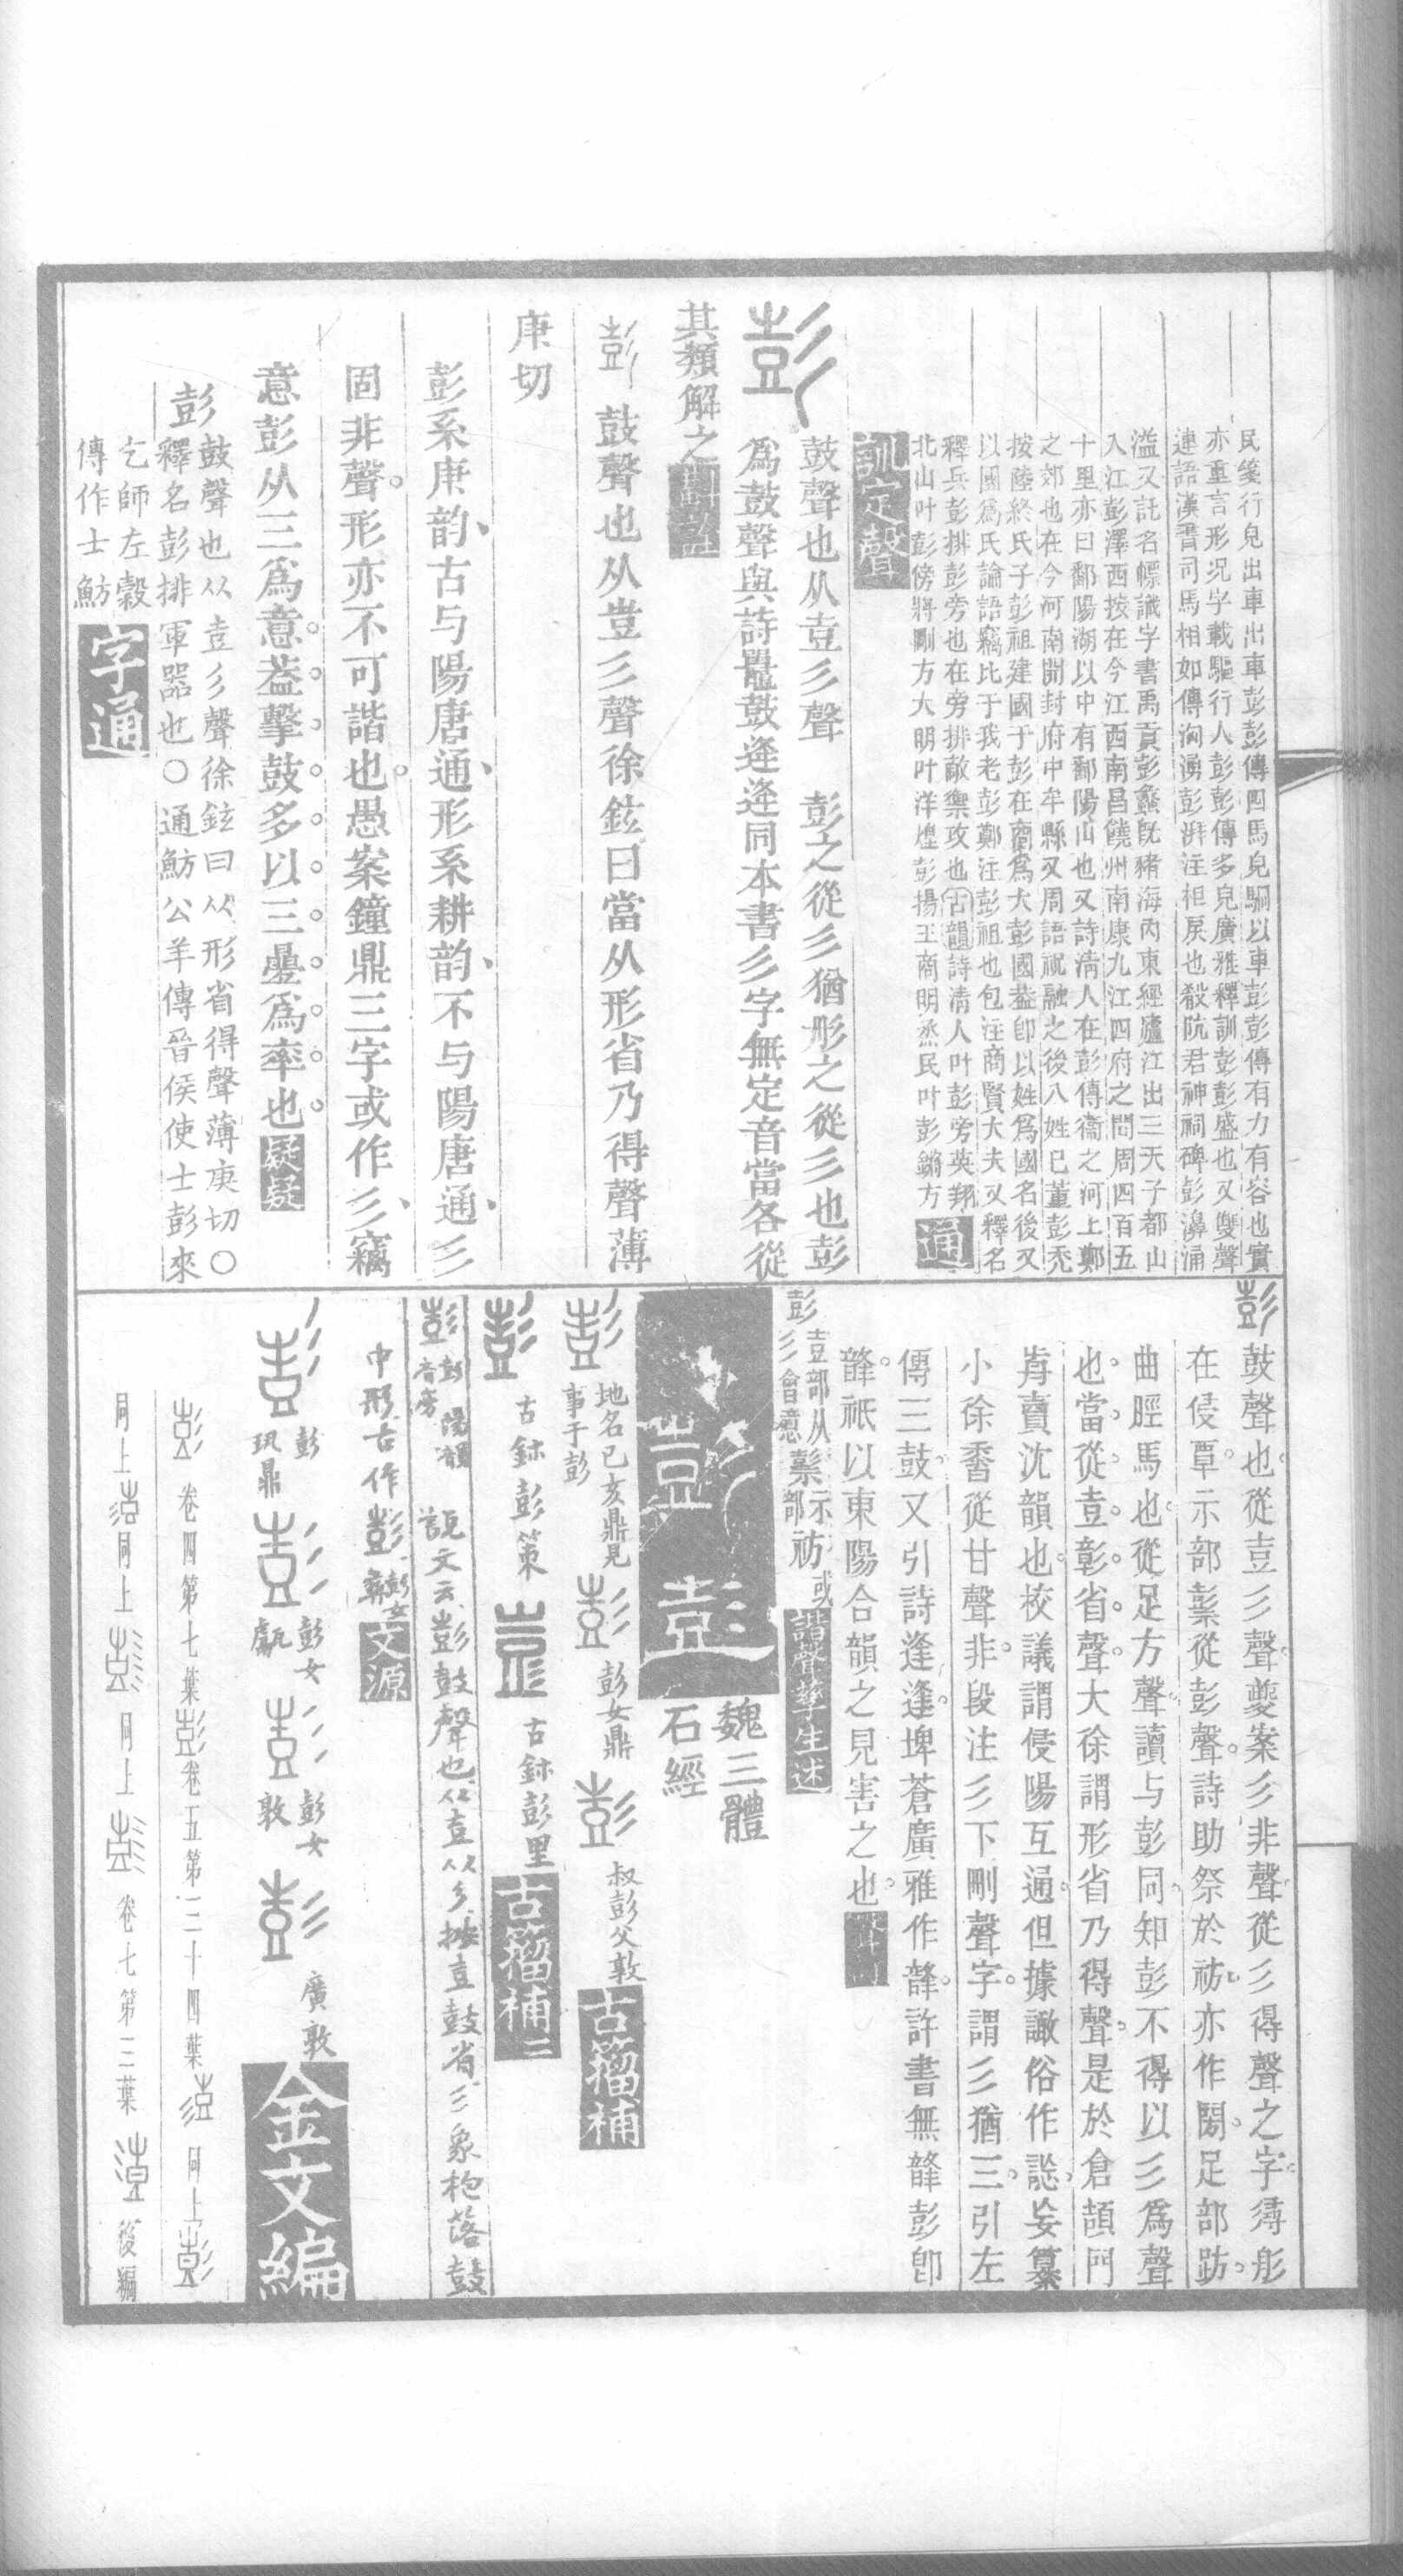 民箋行皃出車出車彭彭傳四馬皃駉以車彭彭傳有力有容也實
亦重言形況字載驅行人彭彭傳多皃廣雅釋訓彭彭盛也又雙聲
連語漢書司馬相如傳洶湧彭湃注相戾也殽阬君神祠碑彭濞涌
溢又託名幖識字書禹貢彭蠡旣豬海內東經廬江出三天子都山
入江彭澤西按在今江西南昌饒州南康九江四府之閒周四百五
十里亦曰鄱陽湖以中有鄱陽山也又詩淸人在彭傳衞之河上鄭
之郊也在今河南開封府中牟縣又周語祝融之後八姓巳董彭禿
按陸終氏子彭祖建國于彭在商爲大彭國葢卽以姓爲國名後又
以國爲氏論語竊比于我老彭鄭注彭祖也包注商賢大夫又釋名
釋兵彭排彭旁也在旁排敵禦攻也古韻詩淸人叶彭旁英翔
北山叶彭傍將剛方大明叶洋煌彭揚王商明烝民叶彭鏘方
通
訓定聲
彭
鼓聲也从壴彡聲 彭之從彡猶形之從彡也彭
爲鼓聲與詩鼉鼓逢逢同本書彡字無定音當各從
其類解之
彭 鼓聲也从壴彡聲徐鉉曰當从形省乃得聲薄
庚切
彭系庚韵古与陽唐通形系耕韵不与陽唐通彡
固非聲形亦不可諧也愚案鐘鼎三字或作彡竊
意彭从三爲意葢擊鼓多以三疊爲率也
疑疑
彭
鼓聲也从壴彡聲徐鉉曰从形省得聲薄庚切〇
釋名彭排軍器也〇通魴公羊傳晉侯使士彭來
乞師左穀
傳作士魴
字通
彭
鼓聲也從壴彡聲夔案彡非聲從彡得聲之字
在侵覃示部䰃從彭聲詩助祭於祊亦作閍足部趽
曲脛馬也從足方聲讀与彭同知彭不得以彡爲聲
也當從壴彰省聲大徐謂形省乃得聲是於倉頡門
歬賣沈韻也校議謂侵陽互通但據
小徐
從甘聲非段注彡下刪聲字謂彡猶三引左
傳三鼓又引詩逢逢埤蒼廣雅作韸許書無韸彭卽
韸祇以東陽合韻之見害之也
彭
壴部从
彡會意
示
部
祊
或
諧聲孳生述
魏三體
石經
彭
地名己亥鼎見
事于彭
彭女鼎
叔彭父敦
古籀補
古鉨彭策
古鉨彭里
古籀補二
彭
音旁
陽韻
說文云彭鼓聲也从壴从彡按壴鼓省彡象枹落鼓
中形古作彭
彭女彝
文源
彭
㺵鼎
彭女
甗
彭女
敦
廣敦
金文編
卷四第七葉
卷五第三十四葉
同上
同上
同上
同上
卷七第三葉
後編